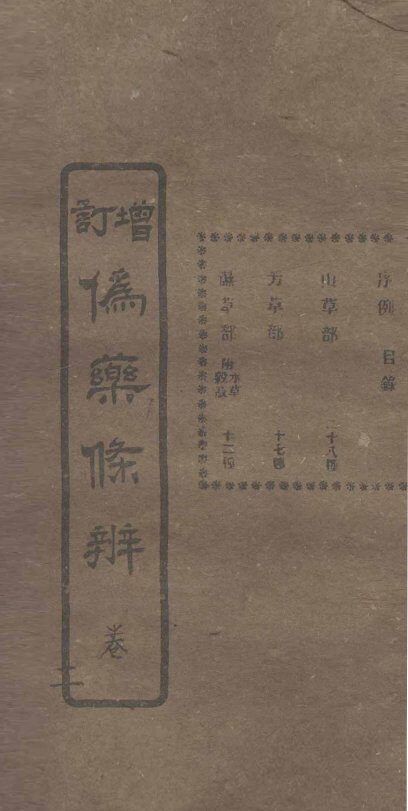 序例 目錄
山草部 十八種
芳草部 十七種
隰草部 附水草穀蔬 十二種
增訂
僞藥條辨
卷二